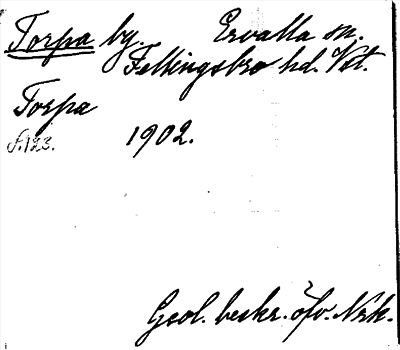 Torpa by. Ervalla sn.
Fellingsbro hd. Vstl.
Torpa
s. 123. 1902.
Geol. beskr. öfv. Nrk.